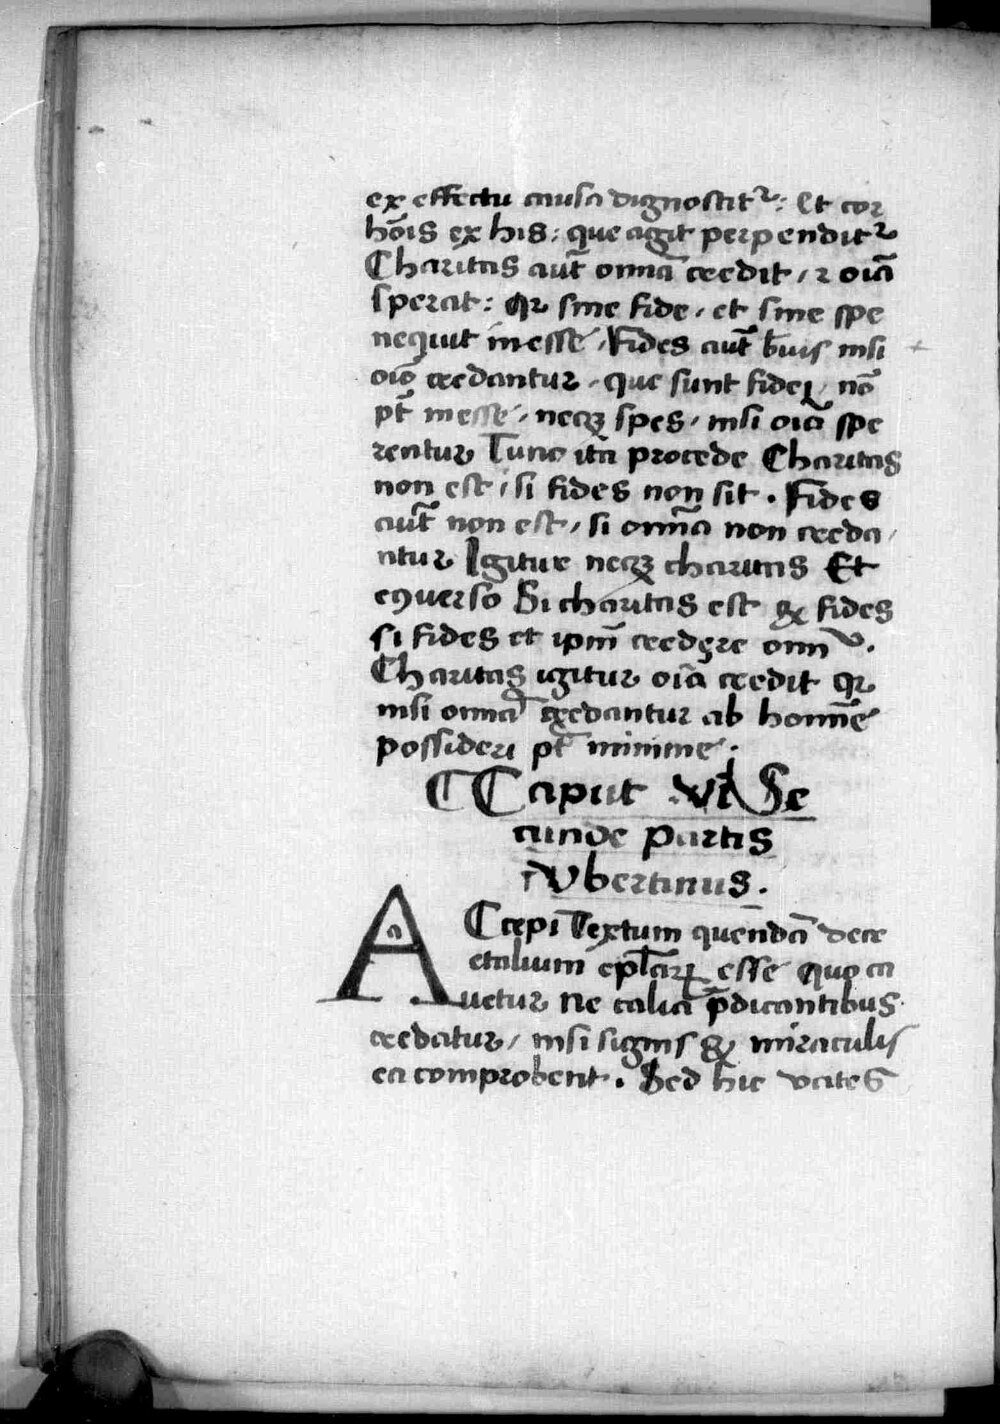 ex effectu causa dignoscitꝛ: Et cor
hoı̄s ex his: que agit perpenditꝛ
Charitas aut̄ omnā credit / ⁊ oı̄a
sperat: qꝛ sine fide, et sine spe
nequit inesse, Fides aut̄ huıꝰ nisi
oı̄o credantur, que sunt fideı, nō
pt̄ inesse, neqꝫ spes, nisi oı̄a spe
rentur Tunc ita procede Charitas
non est / si fides non sit. Fides
aut̄ non est / si omı̄a non creda /
ntur Igitur neqꝫ charitas Et
equerso Si charitas est & fides
si fides et ipm̄ credere omn
Charitas igitur oı̄a credit qꝛ
nisi omnia credantur ab homı̄e
possideri pt̄ minime.
Caput vi Se
cunde partis
Vbertinus.
ACcepi Textum quendā decr
etalium epl̄arꝝ esse quo ca
uetur Ne talia p̄dicantibus
credatur / nisi signis & miraculis
ea comprobent. Sed hic vates